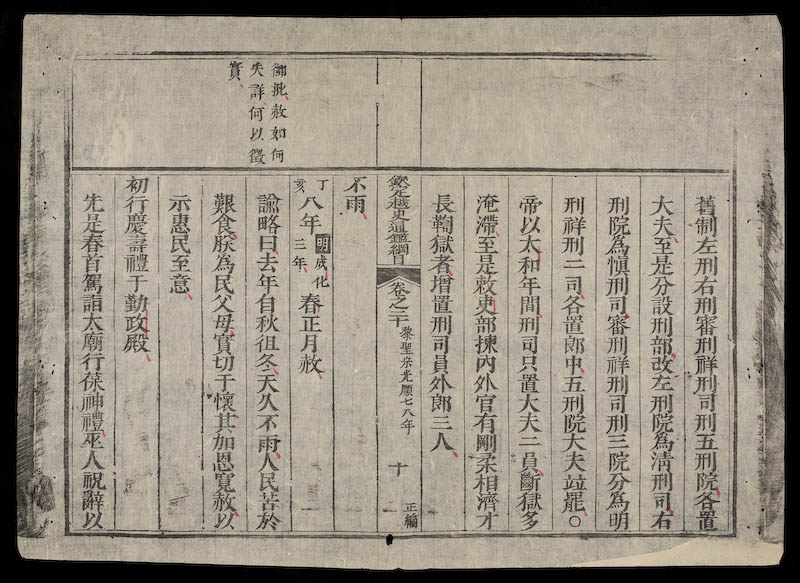 舊制左刑右刑審刑祥刑司刑五刑院各置
大夫至是分設刑部改左刑院為清刑司右
刑院為慎刑司審刑祥刑司刑三院分為明
刑祥刑二司各置郎中五刑院大夫竝罷○
帝以太和年間刑司只置大夫二員斷獄多
淹滯至是敕吏部揀內外官有剛柔相濟才
長鞫獄者增置刑司員外郎三人
欽定越史通鑑綱目 卷之二十 黎聖宗光順七八年 十 正編
不雨
丁亥八年 明成化三年 春正月赦
御批赦如何
失詳何以徵
實
諭略曰去年自秋徂冬天久不雨人民苦於
艱食朕為民父母實切于懷其加恩寬赦以
示惠民至意
初行慶壽禮于勤政殿
先是春首駕詣太廟行葆神禮巫人祝辭以